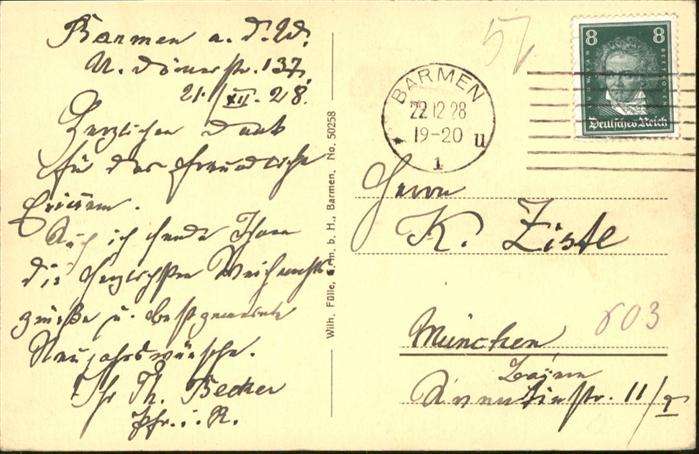 Barmen a. d. W.
U. Dörnerstr. 137.
21./XII. 28.
Herzlichen Dank
für das freundliche
Erinnern.
Auch ich sende Ihnen
die herzlichsten Weihnachts-
grüße u. bestgemeinte
Neujahrswünsche.
Ihr Th. Becker
Pfr. i. R.
Wilh. Fülle, G. m. b. H., Barmen, No. 50258
BARMEN
22.12.28
19-20
* 1 u
8 8
Deutsches Reich
Herrn
K. Zistl
603
München
Bayern
11/I